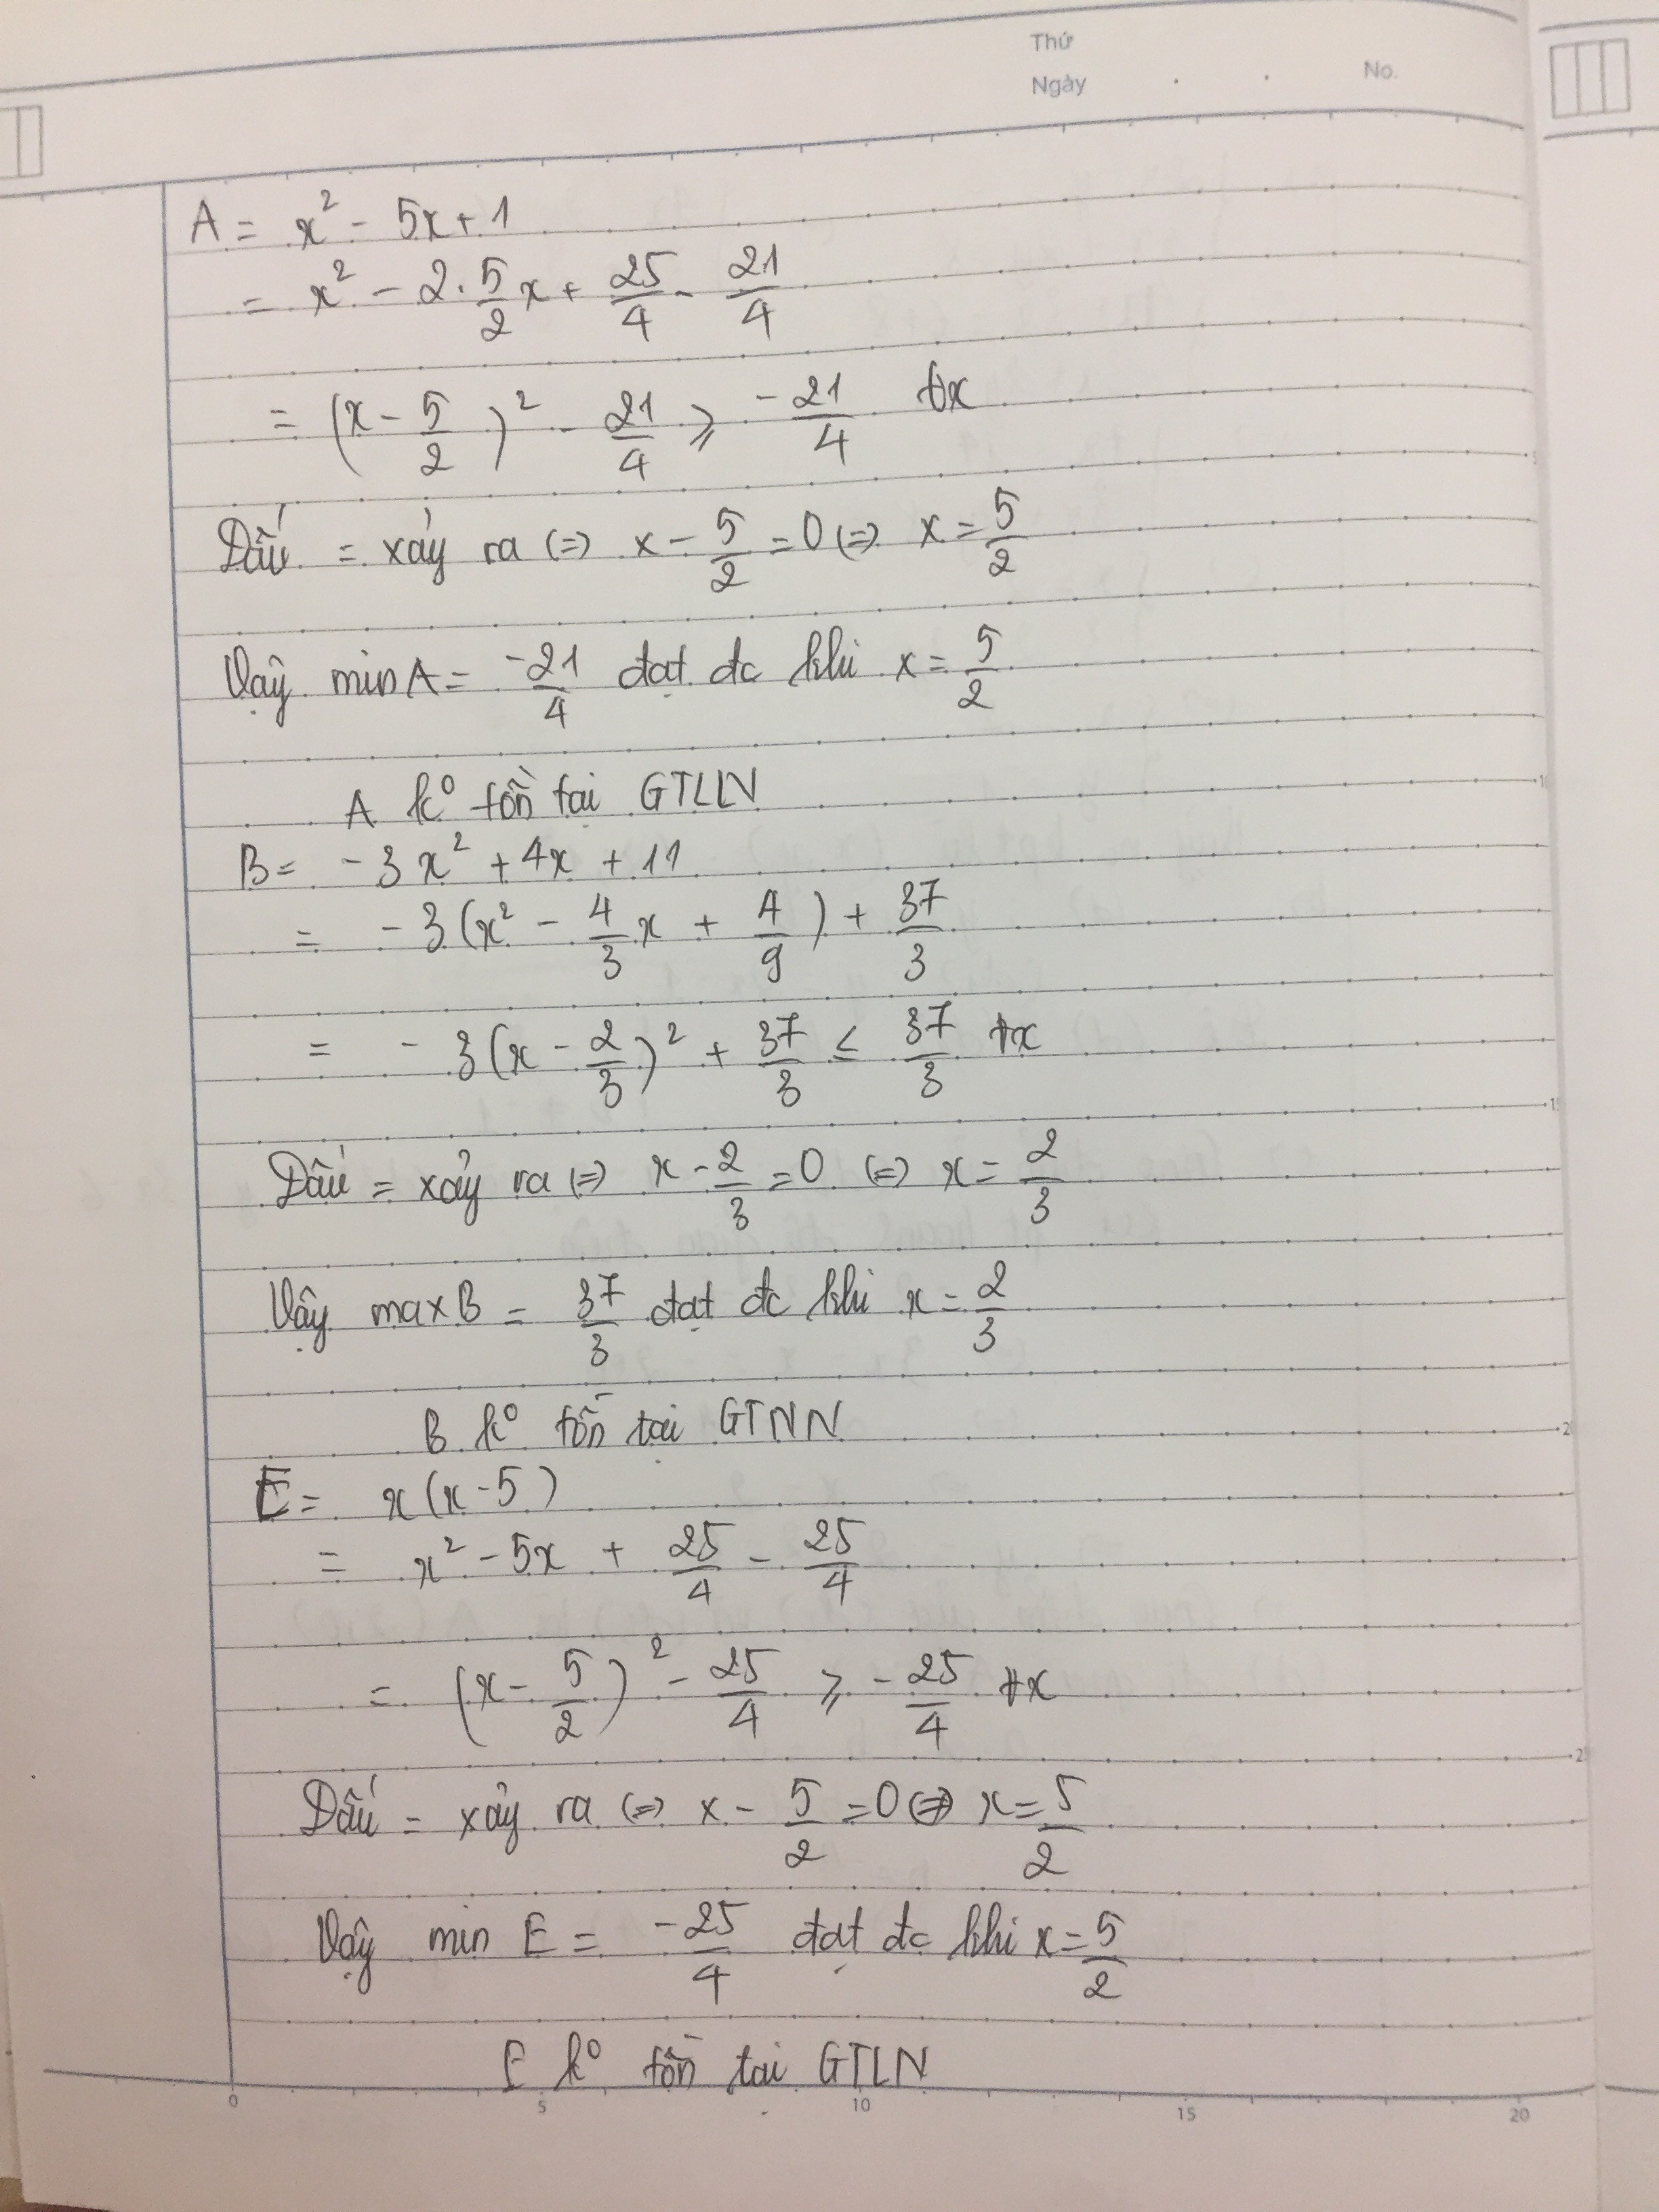 Thứ
Ngày . . No.
A = x² - 5x + 1
= x² - 2 . 5/2 x + 25/4 - 21/4
= (x - 5/2)² - 21/4 ⩾ -21/4 ∀x
Dấu = xảy ra (=) x - 5/2 = 0 (=) x = 5/2
Vậy min A = -21/4 đạt đc khi x = 5/2
A k⁰ tồn tại GTLLN
B = -3x² + 4x + 11
= -3(x² - 4/3 x + 4/9) + 37/3
= -3(x - 2/3)² + 37/3 ≤ 37/3 ∀x
Dấu = xảy ra (=) x - 2/3 = 0 (=) x = 2/3
Vậy max B = 37/3 đạt đc khi x = 2/3
B k⁰ tồn tại GTNN
E = x(x - 5)
= x² - 5x + 25/4 - 25/4
= (x - 5/2)² - 25/4 ⩾ -25/4 ∀x
Dấu = xảy ra (=) x - 5/2 = 0 (=) x = 5/2
Vậy min E = -25/4 đạt đc khi x = 5/2
E k⁰ tồn tại GTLN
0 5 10 15 20